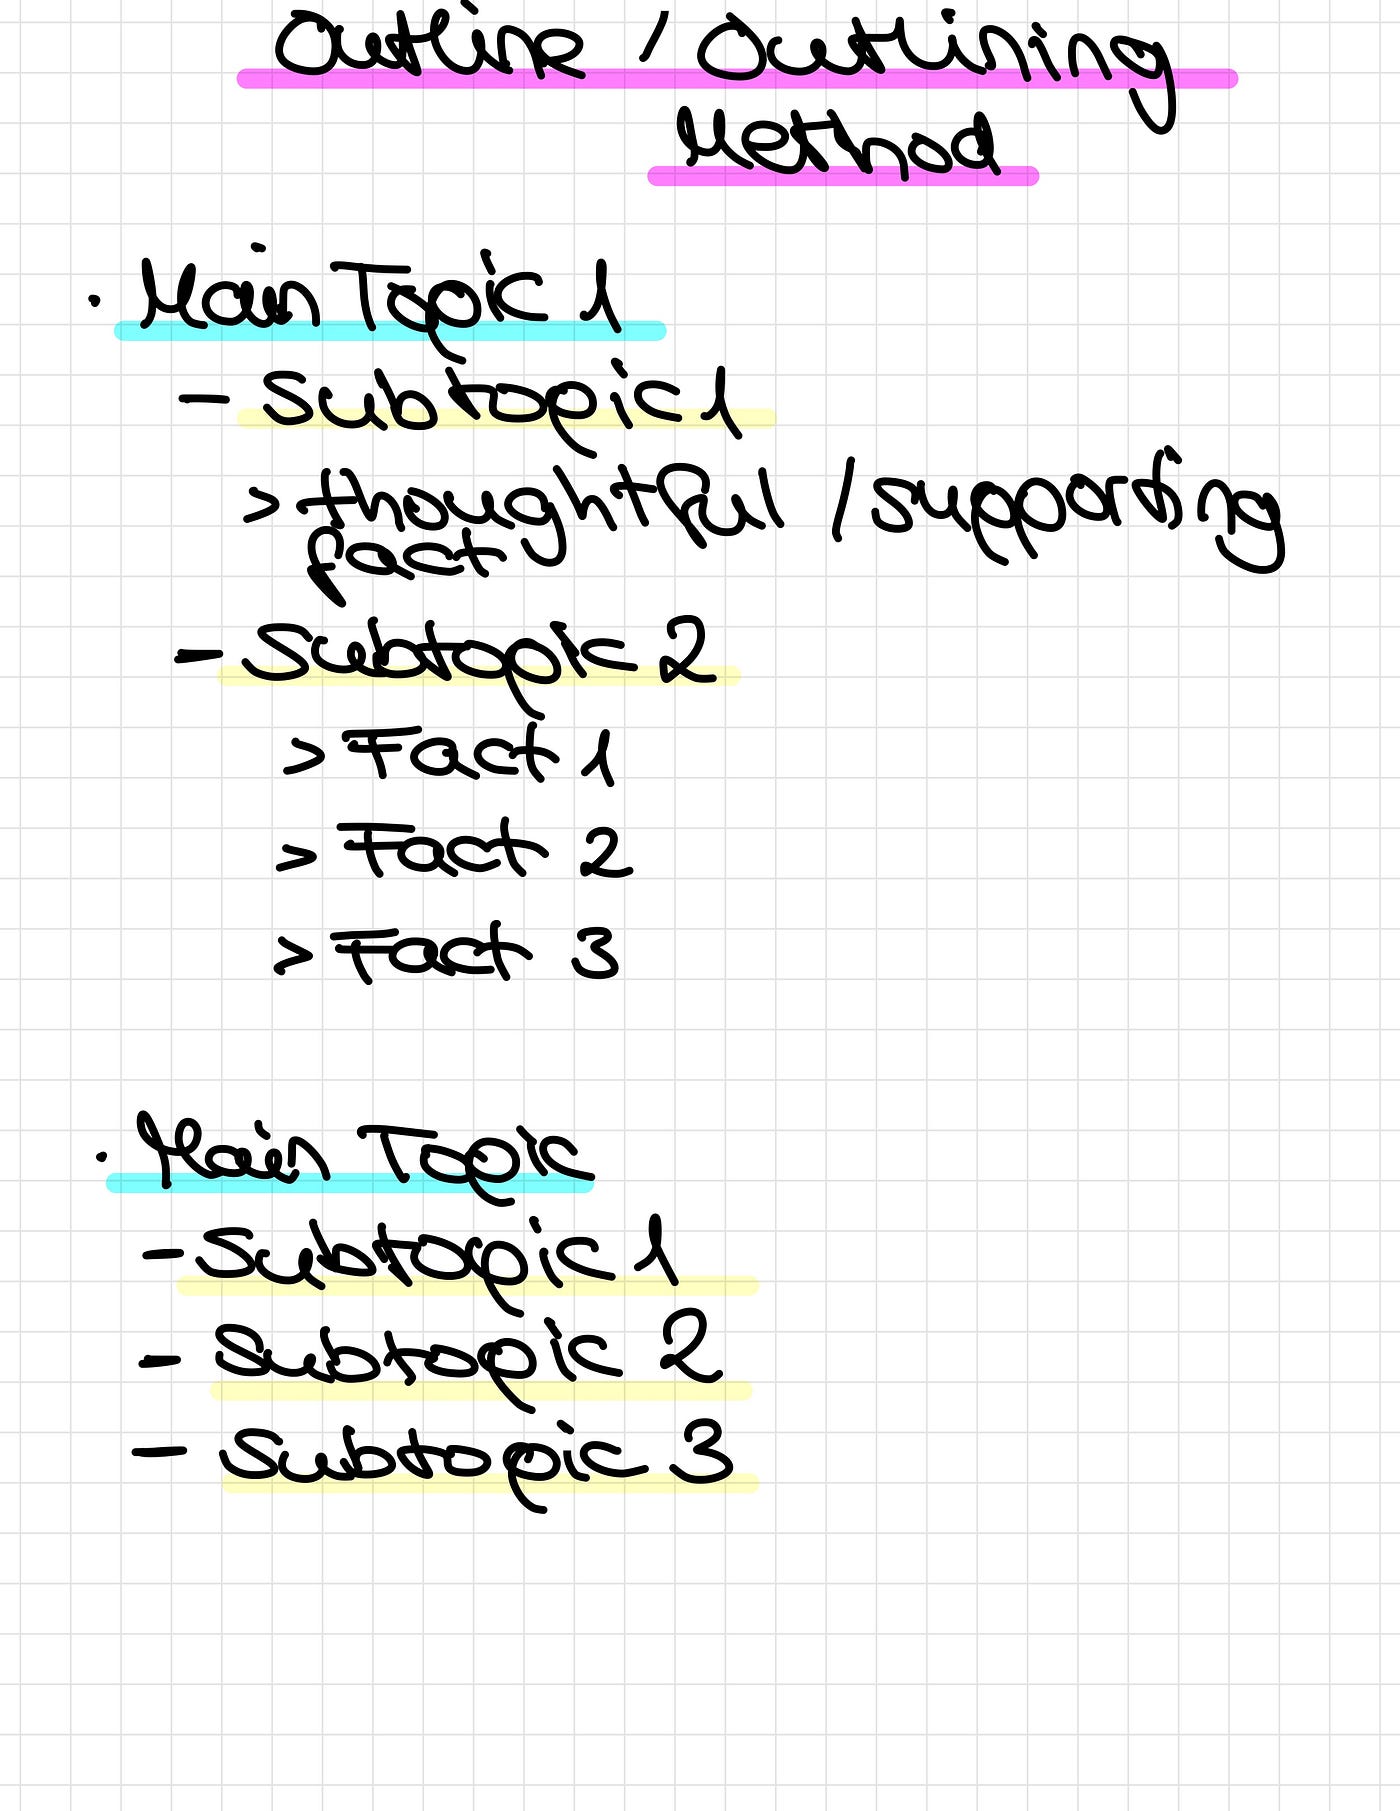 Outline / Outlining
Method
. Main Topic 1
- Subtopic 1
> thoughtful / supporting
fact
- Subtopic 2
> Fact 1
> Fact 2
> Fact 3
. Main Topic
- Subtopic 1
- Subtopic 2
- Subtopic 3